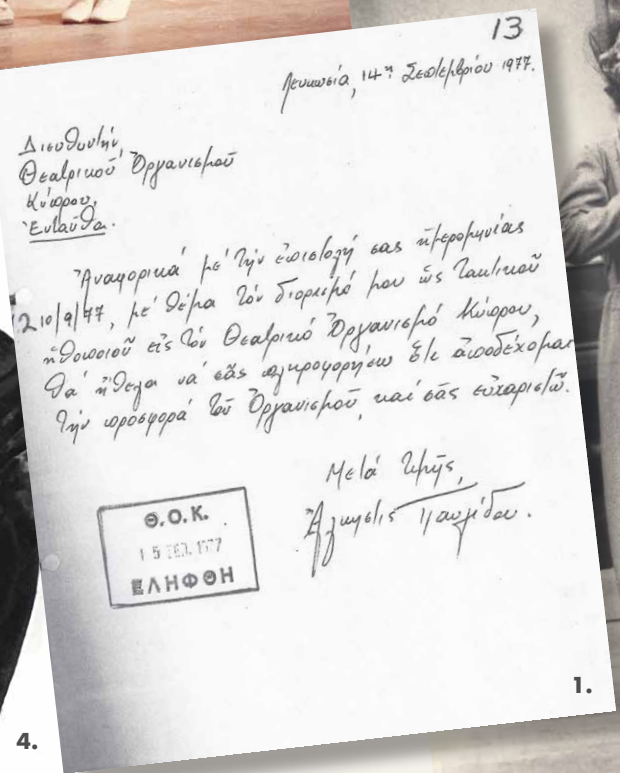 13
Λευκωσία, 14η Σεπτεμβρίου 1977.
Διευθυντήν,
Θεατρικοῦ Ὀργανισμοῦ
Κύπρου,
Ἐνταῦθα.
Ἀναφορικά μέ τήν ἐπιστολή σας ἡμερομηνίας
10/9/77, μέ θέμα τόν διορισμό μου ὡς τακτικοῦ
ἠθοποιοῦ εἰς τόν Θεατρικό Ὀργανισμό Κύπρου,
θά ἤθελα νά σᾶς πληροφορήσω ὅτι ἀποδέχομαι
τήν προσφορά τοῦ Ὀργανισμοῦ, καί σᾶς εὐχαριστῶ.
Μετά τιμῆς,
Ἄλκηστις Παυλίδου.
Θ.Ο.Κ.
15 ΣΕΠ. 1977
ΕΛΗΦΘΗ
1.
4.